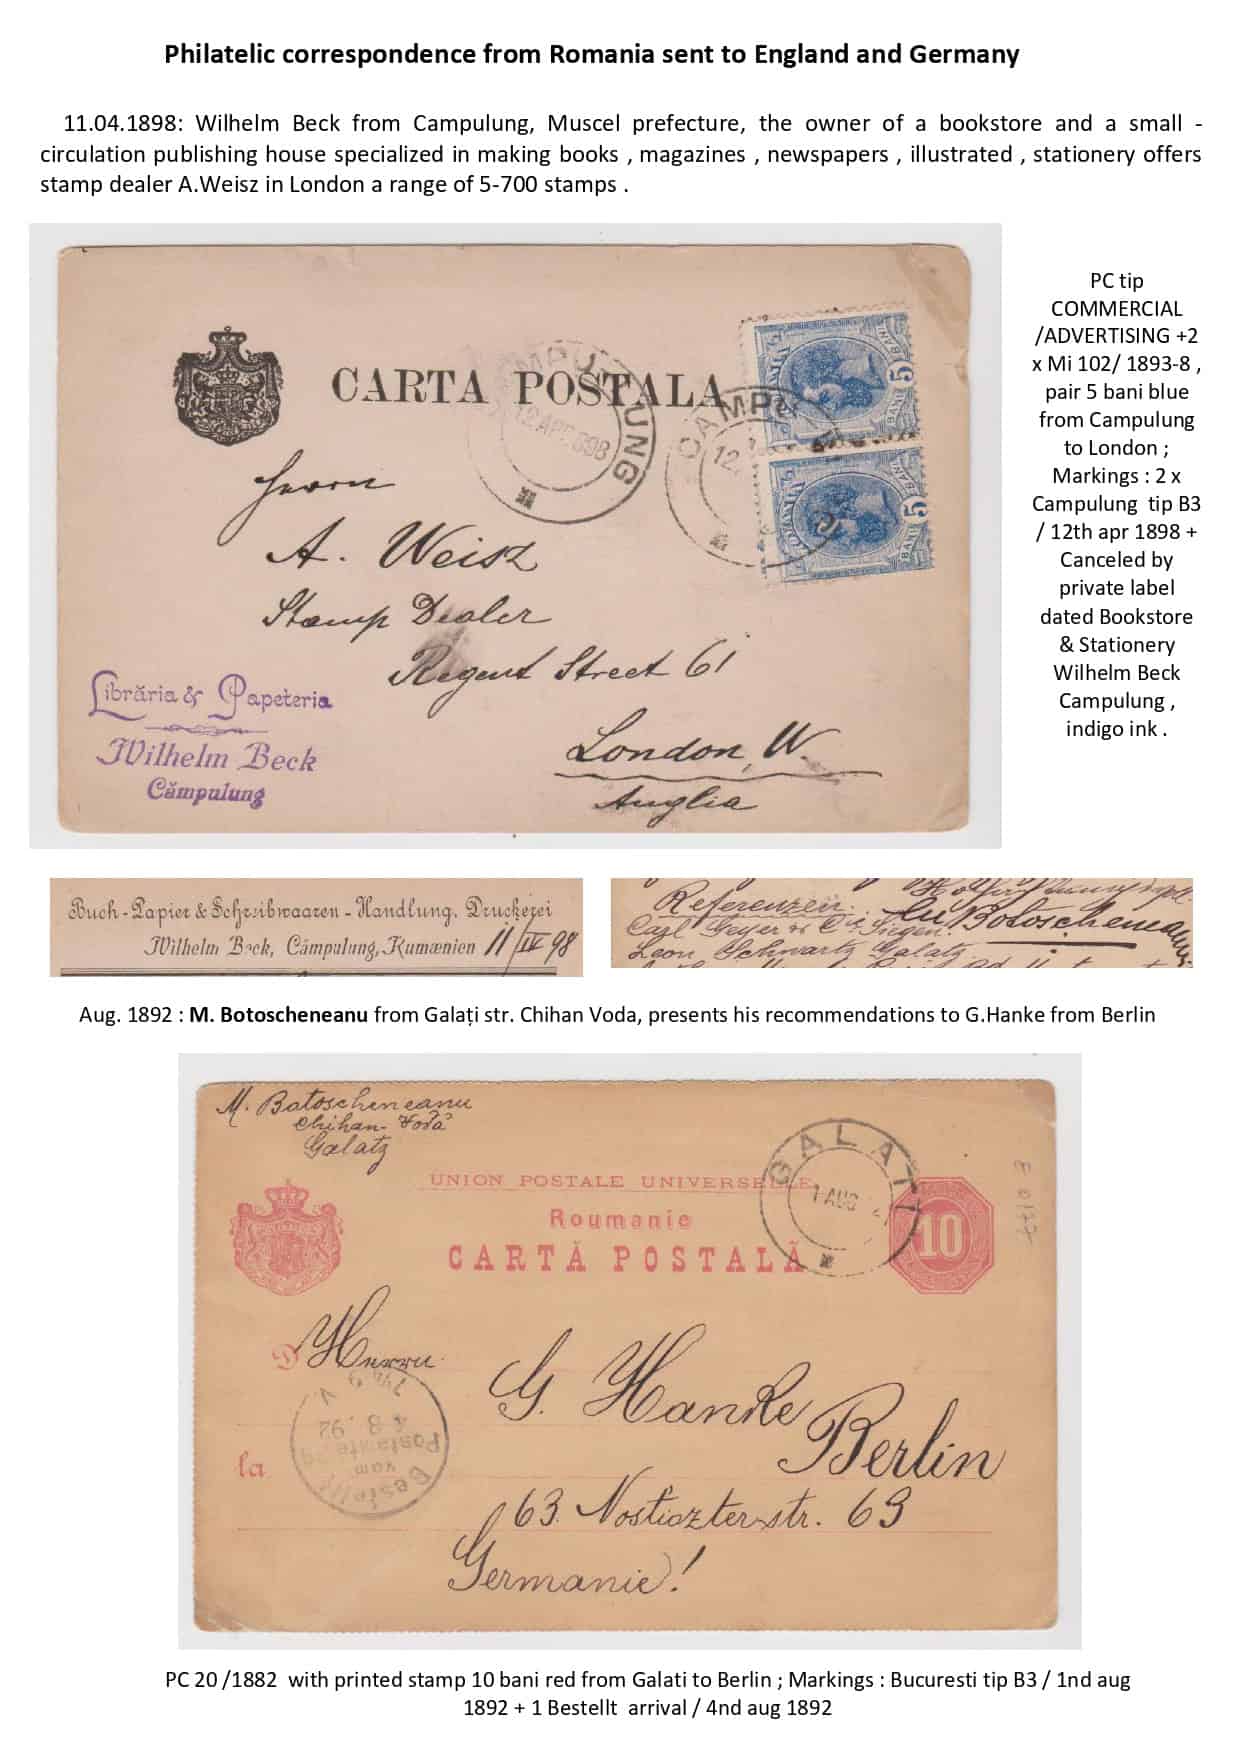 Philatelic correspondence from Romania sent to England and Germany
11.04.1898: Wilhelm Beck from Campulung, Muscel prefecture, the owner of a bookstore and a small -
circulation publishing house specialized in making books , magazines , newspapers , illustrated , stationery offers
stamp dealer A.Weisz in London a range of 5-700 stamps .
CARTA POSTALA
CAMPULUNG
12 APR 898
CAMPU
12
5 BANI
5 BANI
Herrn
A. Weisz
Stamp Dealer
Regent Street 61
London, W.
Anglia
Librăria & Papeteria
Wilhelm Beck
Câmpulung
PC tip
COMMERCIAL
/ADVERTISING +2
x Mi 102/ 1893-8 ,
pair 5 bani blue
from Campulung
to London ;
Markings : 2 x
Campulung tip B3
/ 12th apr 1898 +
Canceled by
private label
dated Bookstore
& Stationery
Wilhelm Beck
Campulung ,
indigo ink .
Buch-Papier & Schreibwaaren-Handlung, Druckerei
Wilhelm Beck, Câmpulung, Rumænien 11/IV 98
Referenzen:
Carl Geyer & Cie Siegen.
Leon Schwartz Galatz
Botoscheneanu
Aug. 1892 : M. Botoscheneanu from Galați str. Chihan Voda, presents his recommendations to G.Hanke from Berlin
M. Botoscheneanu
Chihan-Vodă
Galatz
UNION POSTALE UNIVERSELLE
Roumanie
CARTĂ POSTALĂ
GALATI
1 AUG
10
E 0177
D
Herrn
G. Hanke
Berlin
la
Bestellt
vom
Postamte
4 8. 92
63. Nostiozterstr. 63
Germanie!
PC 20 /1882 with printed stamp 10 bani red from Galati to Berlin ; Markings : Bucuresti tip B3 / 1nd aug
1892 + 1 Bestellt arrival / 4nd aug 1892